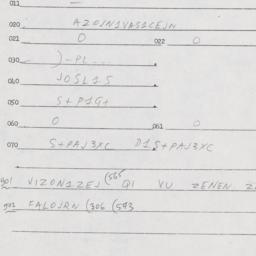 011 —
020 AZOJN1VAS1CEJN
021 0 022 0
030 )-PL...
040 JOSL1S
050 S+P1G+
060 0 061 0
070 S+PAJ3XC D1S+PAJ3XC
901 VIZON1ZEJ (565 QI VU ZENEN
902 FALOJRN (306 (593